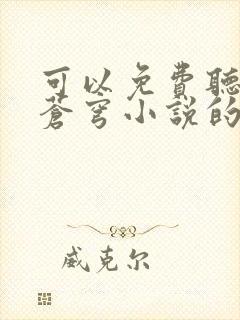 可以免費聽
蒼穹小説的
威克尔